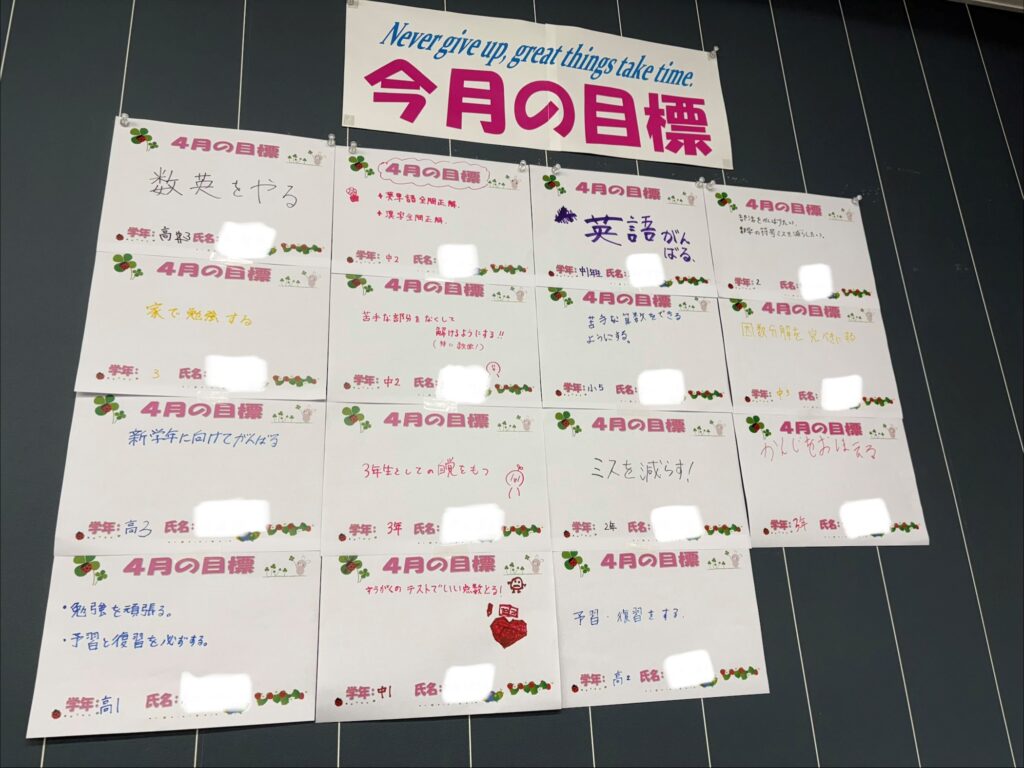 Never give up, great things take time.
今月の目標
4月の目標
数英をやる
学年: 高3 氏名:
4月の目標
+ 英単語全問正解.
+ 漢字全問正解.
学年: 中2 氏名:
4月の目標
英語がん
ばる.
学年: 中1 氏名:
4月の目標
数学の符号ミスを減らしたい。
学年: 2 氏名:
4月の目標
家で勉強する
学年: 3 氏名:
4月の目標
苦手な部分をなくして
解けるようにする!!
学年: 中2 氏名:
4月の目標
苦手な算数をできる
ようにする。
学年: 小5 氏名:
4月の目標
因数分解を完ぺきにする
学年: 中3 氏名:
4月の目標
新学年に向けてがんばる
学年: 高3 氏名:
4月の目標
3年生としての自覚をもつ
学年: 3年 氏名:
4月の目標
ミスを減らす!
学年: 2年 氏名:
4月の目標
かんじをおぼえる
学年: 3年 氏名:
4月の目標
・勉強を頑張る。
・予習と復習を必ずする。
学年: 高1 氏名:
4月の目標
すうがくのテストでいい点数とる!
学年: 中1 氏名:
4月の目標
予習・復習をする.
学年: 高2 氏名: